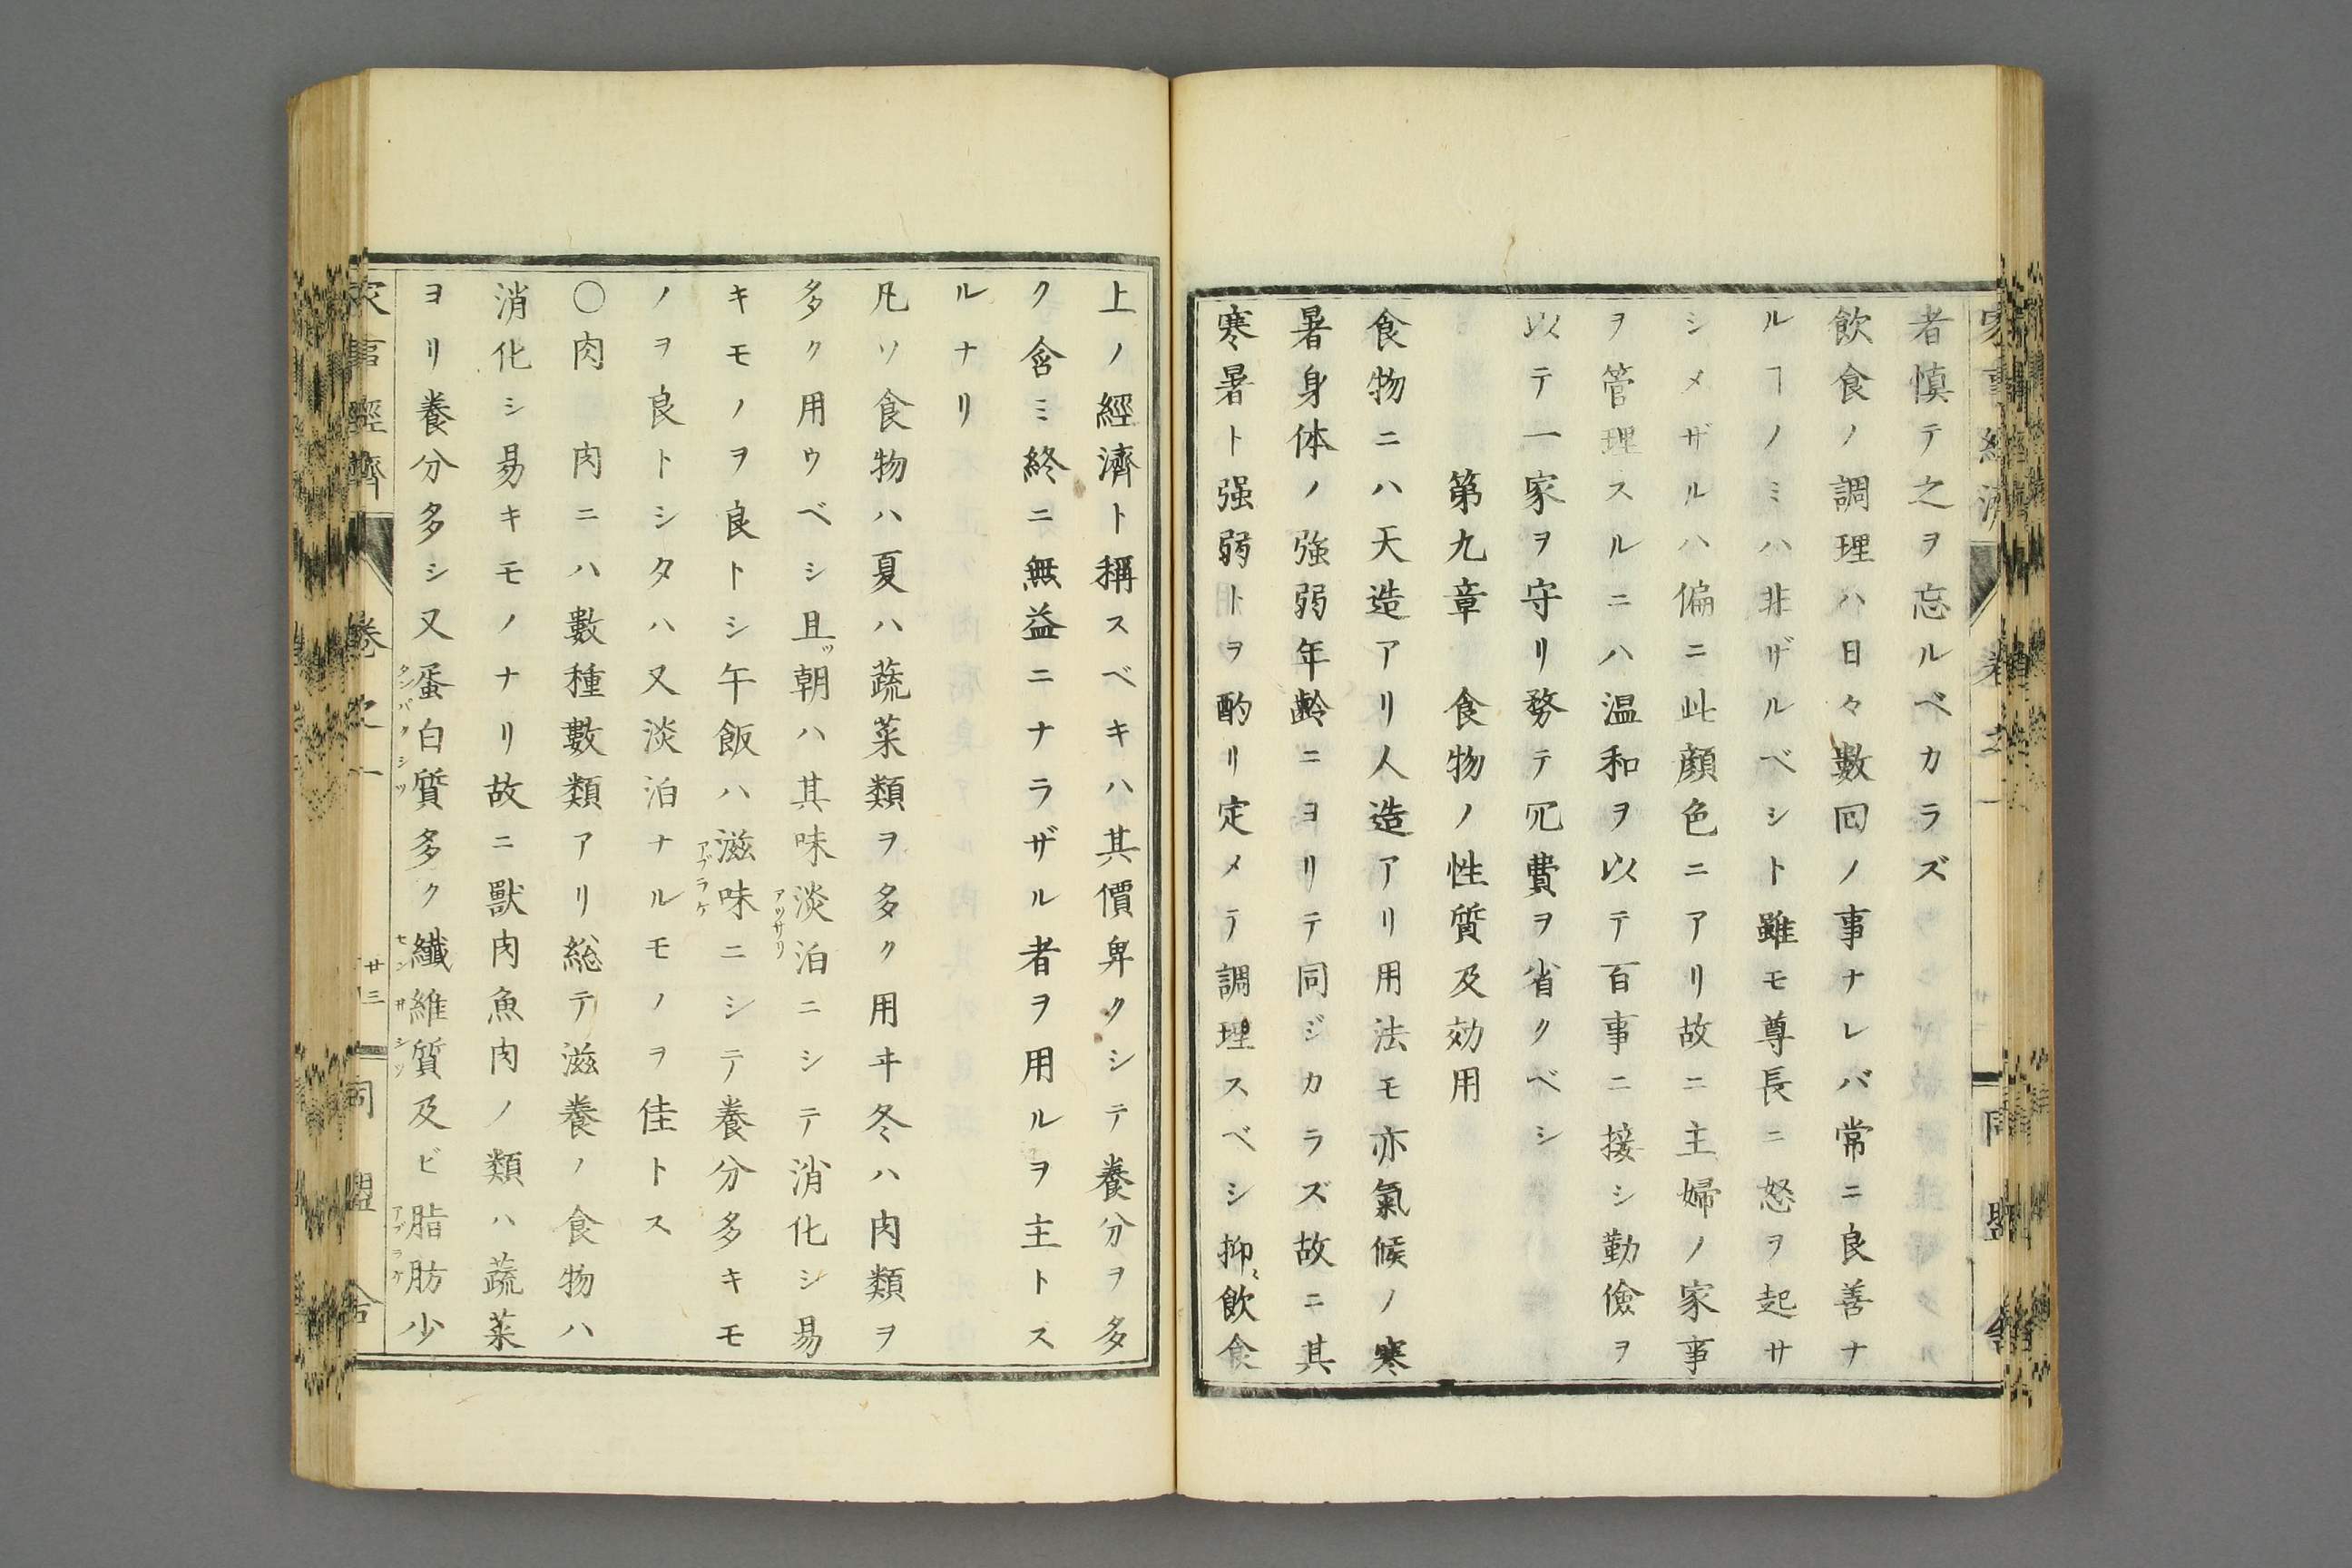 者慎テ之ヲ忘ルベカラズ
飲食ノ調理ハ日々數囘ノ事ナレバ常ニ良善ナ
ルヿノミハ非ザルベシト雖モ尊長ニ怒ヲ起サ
シメザルハ偏ニ此顔色ニアリ故ニ主婦ノ家事
ヲ管理スルニハ温和ヲ以テ百事ニ接シ勤儉ヲ
以テ一家ヲ守リ務テ冗費ヲ省クベシ
第九章 食物ノ性質及効用
食物ニハ天造アリ人造アリ用法モ亦氣候ノ寒
暑身体ノ強弱年齢ニヨリテ同ジカラズ故ニ其
寒暑ト强弱トヲ酌リ定メテ調理スベシ抑〻飲食
上ノ經濟ト稱スベキハ其價卑クシテ養分ヲ多
ク含ミ終ニ無益ニナラザル者ヲ用ルヲ主トス
ルナリ
凡ソ食物ハ夏ハ蔬菜類ヲ多ク用ヰ冬ハ肉類ヲ
多ク用ウベシ且ツ朝ハ其味淡泊アツサリニシテ消化シ易
キモノヲ良トシ午飯ハ滋味アブラケニシテ養分多キモ
ノヲ良トシタハ又淡泊ナルモノヲ佳トス
〇肉 肉ニハ數種數類アリ総テ滋養ノ食物ハ
消化シ易キモノナリ故ニ獸肉魚肉ノ類ハ蔬菜
ヨリ養分多シ又蛋白質タンパクシツ多ク纎維質センサシツ及ビ脂肪アブラケ少
家事經濟 卷之一 廿三 同盟舎